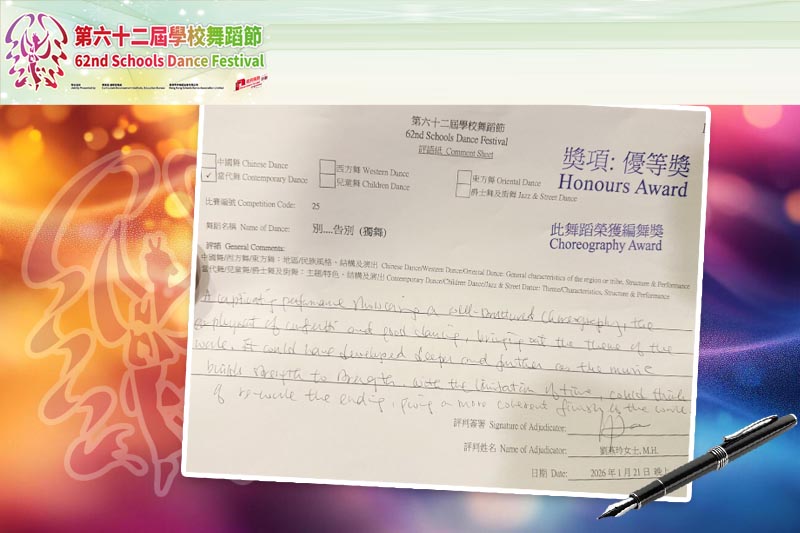 第六十二屆學校舞蹈節
62nd Schools Dance Festival
第六十二屆學校舞蹈節
62nd Schools Dance Festival
評語紙 Comment Sheet
中國舞 Chinese Dance
西方舞 Western Dance
東方舞 Oriental Dance
✓ 當代舞 Contemporary Dance
兒童舞 Children Dance
爵士舞及街舞 Jazz & Street Dance
獎項: 優等獎
Honours Award
比賽編號 Competition Code: 25
舞蹈名稱 Name of Dance: 別....告別 (獨舞)
此舞蹈榮獲編舞獎
Choreography Award
評語 General Comments:
中國舞/西方舞/東方舞：地區/民族風格、結構及演出 Chinese Dance/Western Dance/Oriental Dance: General characteristics of the region or tribe, Structure & Performance
當代舞/兒童舞/爵士舞及街舞：主題/特色、結構及演出 Contemporary Dance/Children Dance/Jazz & Street Dance: Theme/Characteristics, Structure & Performance
A captivating performance showcasing a well-structured choreography, the
employment of and good dancing, bringing out the theme of the
work. It could have developed deeper and further as the music
builds strength to strength. With the limitation of time, could think
of re-work the ending, giving a more coherent finish of the work.
評判簽署 Signature of Adjudicator:
評判姓名 Name of Adjudicator: 劉燕玲女士, M.H.
日期 Date: 2026年1月21日 晚上